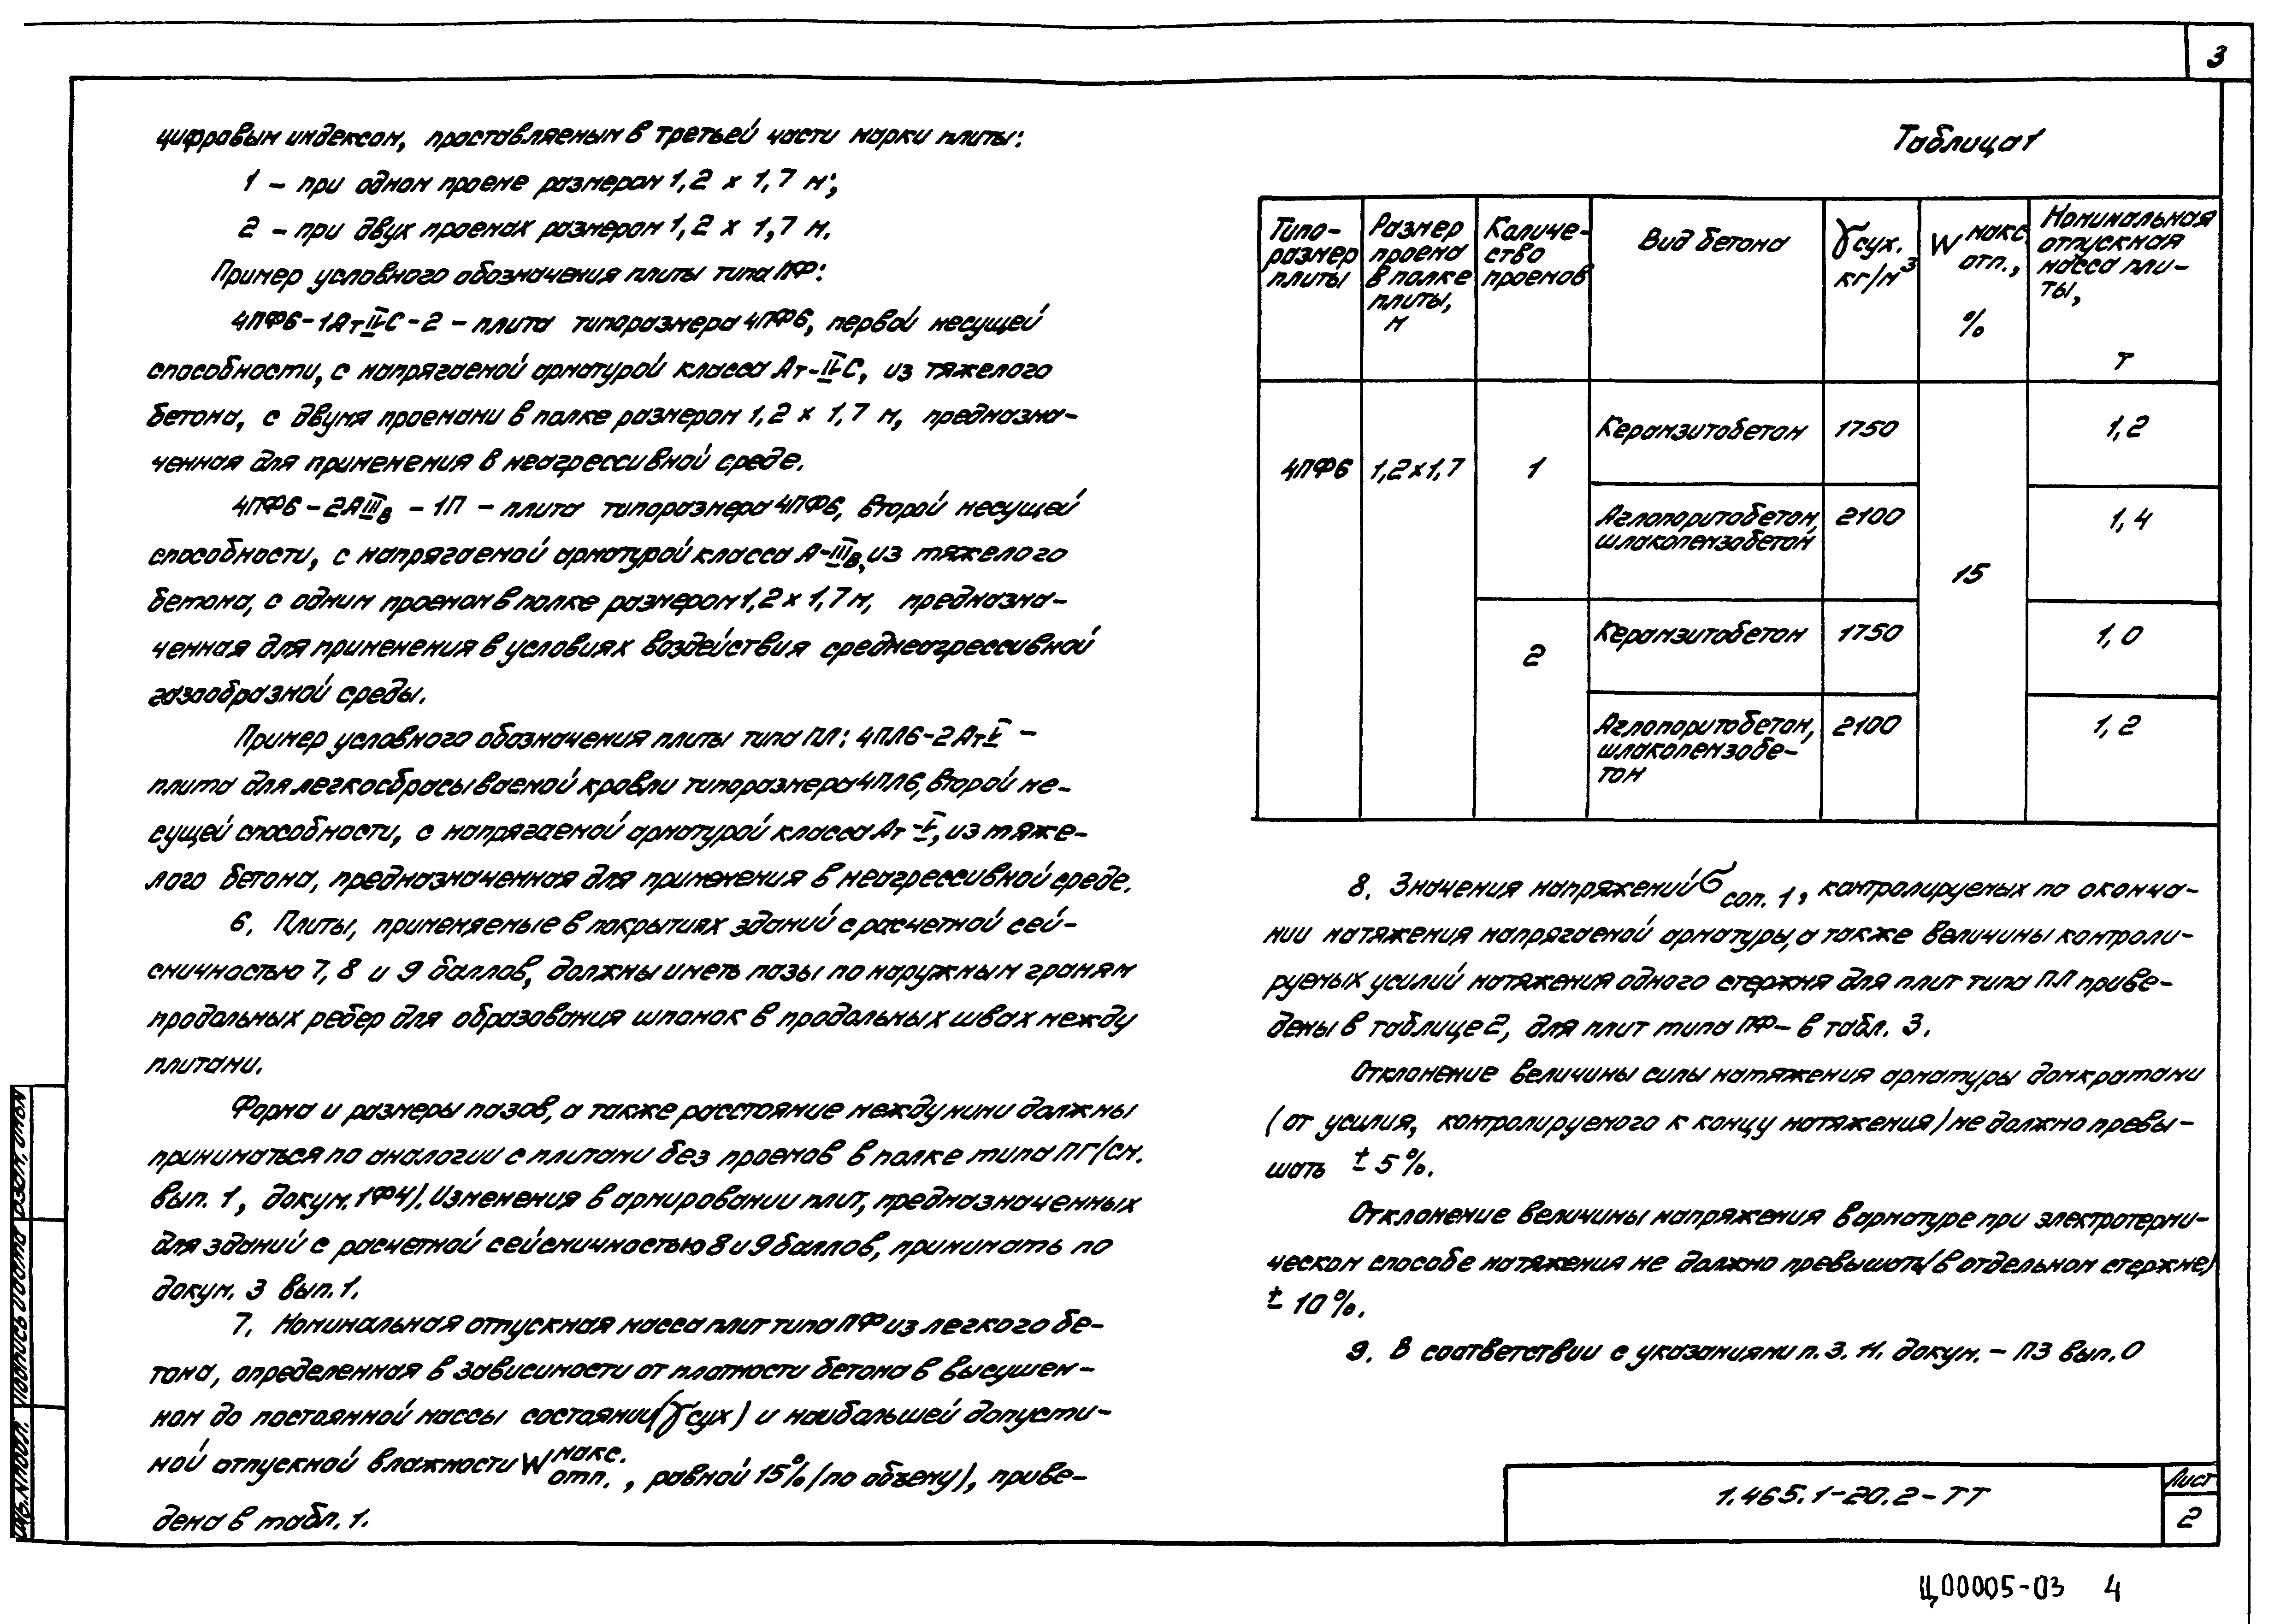 3
цифровым индексом, проставляемым в третьей части марки плиты:
1 – при одном проеме размером 1,2 x 1,7 м;
2 – при двух проемах размером 1,2 x 1,7 м.
Пример условного обозначения плиты типа ПФ:
4ПФ6-1АтIVС-2 – плита типоразмера 4ПФ6, первой несущей
способности, с напрягаемой арматурой класса Ат-IVС, из тяжелого
бетона, с двумя проемами в полке размером 1,2 x 1,7 м, предназна-
ченная для применения в неагрессивной среде.
4ПФ6-2АIIIв – 1П – плита типоразмера 4ПФ6, второй несущей
способности, с напрягаемой арматурой класса А-IIIв, из тяжелого
бетона, с одним проемом в полке размером 1,2 x 1,7 м, предназна-
ченная для применения в условиях воздействия среднеагрессивной
газообразной среды.
Пример условного обозначения плиты типа ПЛ: 4ПЛ6-2АтV –
плита для легкосбрасываемой кровли типоразмера 4ПЛ6, второй не-
сущей способности, с напрягаемой арматурой класса Ат-V, из тяже-
лого бетона, предназначенная для применения в неагрессивной среде.
6. Плиты, применяемые в покрытиях зданий с расчетной сей-
смичностью 7, 8 и 9 баллов, должны иметь пазы по наружным граням
продольных ребер для образования шпонок в продольных швах между
плитами.
Форма и размеры пазов, а также расстояние между ними должны
приниматься по аналогии с плитами без проемов в полке типа ПГ/см.
вып. 1, докум. 1Ф4). Изменения в армировании плит, предназначенных
для зданий с расчетной сейсмичностью 8 и 9 баллов, принимать по
докум. 3 вып. 1.
7. Номинальная отпускная масса плит типа ПФ из легкого бе-
тона, определенная в зависимости от плотности бетона в высушен-
ном до постоянной массы состоянии (γсух) и наибольшей допусти-
мой отпускной влажности W макс. отп., равной 15% (по объему), приве-
дена в табл. 1.
Таблица 1
Типо- размер плиты | Размер проема в полке плиты, м | Количе- ство проемов | Вид бетона | γсух. кг/м³ | W макс. отп., % | Номинальная отпускная масса пли- ты, т
4ПФ6 | 1,2x1,7 | 1 | Керамзитобетон | 1750 | 15 | 1,2
Аглопоритобетон, шлакопемзобетон | 2100 | 1,4
2 | Керамзитобетон | 1750 | 1,0
Аглопоритобетон, шлакопемзобе- тон | 2100 | 1,2
8. Значения напряжений σ соп. 1, контролируемых по оконча-
нии натяжения напрягаемой арматуры, а также величины контроли-
руемых усилий натяжения одного стержня для плит типа ПЛ приве-
дены в таблице 2, для плит типа ПФ – в табл. 3.
Отклонение величины силы натяжения арматуры домкратами
(от усилия, контролируемого к концу натяжения) не должно превы-
шать ± 5%.
Отклонение величины напряжения в арматуре при электротерми-
ческом способе натяжения не должно превышать (в отдельном стержне)
± 10%.
9. В соответствии с указаниями п. 3.11. докум. – ПЗ вып. 0
1.465.1-20.2-ТТ
Лист
2
Инв.№ подл. Подпись и дата Взам. инв.№
Ц00005-03 4